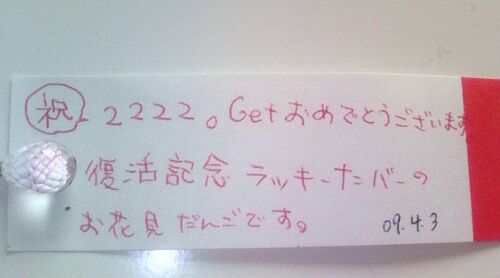 祝 2222。Getおめでとうございます
復活記念 ラッキーナンバーの
お花見だんごです。 09.4.3